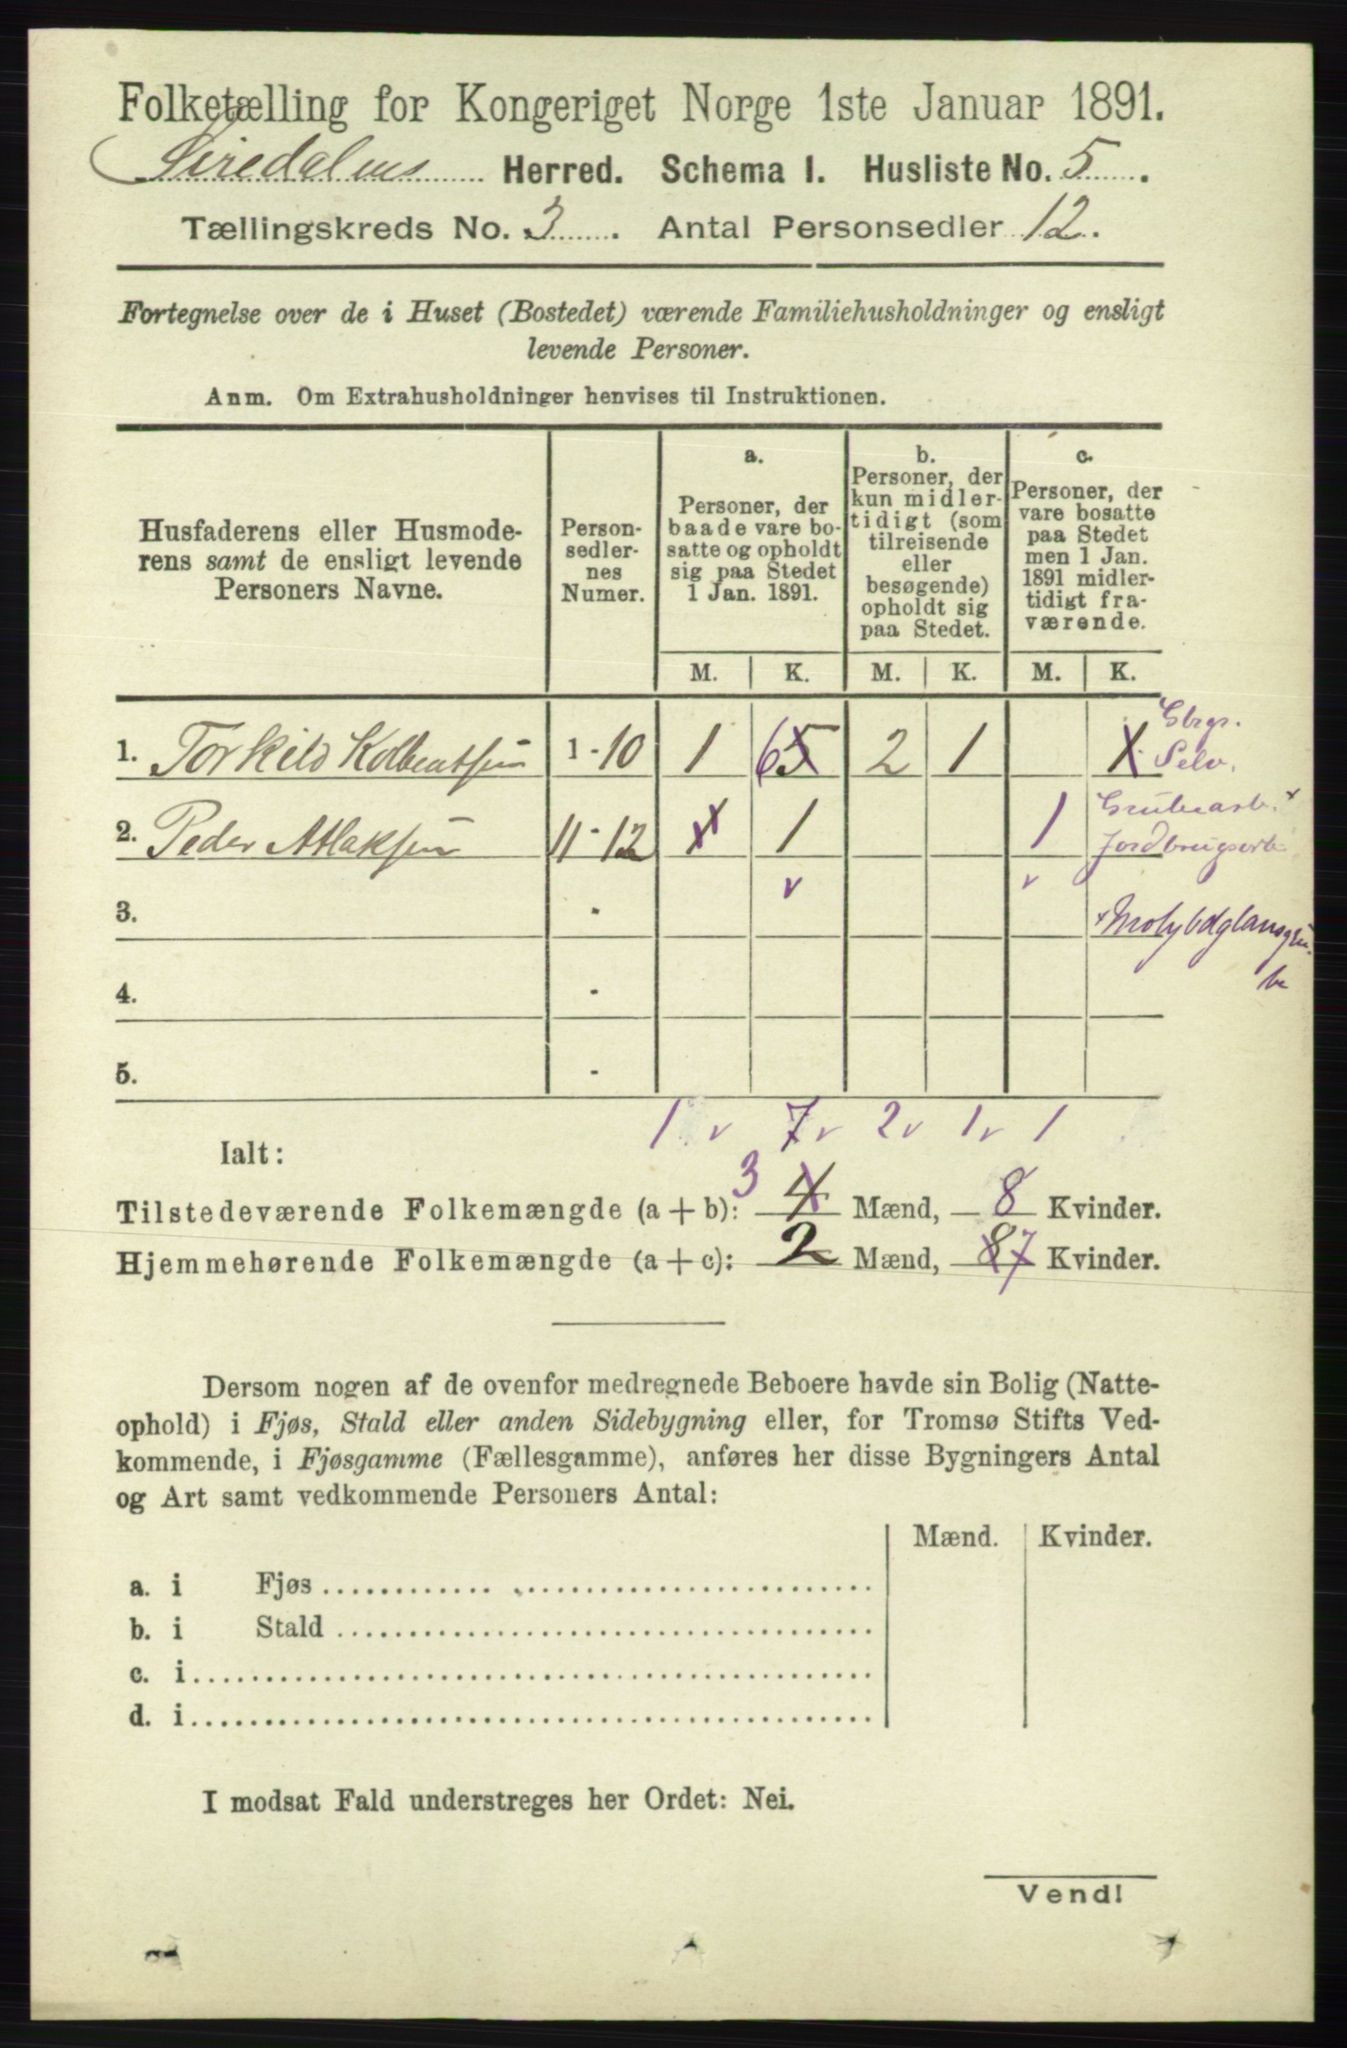 Folketælling for Kongeriget Norge 1ste Januar 1891.
Siredalens Herred. Schema I. Husliste No. 5.
Tællingskreds No. 3. Antal Personsedler 12.
Fortegnelse over de i Huset (Bostedet) værende Familiehusholdninger og ensligt
levende Personer.
Anm. Om Extrahusholdninger henvises til Instruktionen.
Husfaderens eller Husmode-
rens samt de ensligt levende
Personers Navne.
Person-
sedler-
nes
Numer.
a.
Personer, der
baade vare bo-
satte og opholdt
sig paa Stedet
1 Jan. 1891.
b.
Personer, der
kun midler-
tidigt (som
tilreisende
eller
besøgende)
opholdt sig
paa Stedet.
c.
Personer, der
vare bosatte
paa Stedet
men 1 Jan.
1891 midler-
tidigt fra-
værende.
M. K. M. K. M. K.
1. Torkild Kolbentsen 1-10 1 6 5 2 1 1 Gbrgr. Selv.
2. Peder Atlaksen 11-12 1 1 1 Grubearb. x
Jordbrugsarb.
3. -
x Molybdglansgru
be
4. -
5. -
1 v 7 v 2 v 1 v 1
Ialt:
Tilstedeværende Folkemængde (a + b): 3 4 Mænd, 8 Kvinder.
Hjemmehørende Folkemængde (a + c): 2 Mænd, 8 7 Kvinder.
Dersom nogen af de ovenfor medregnede Beboere havde sin Bolig (Natte-
ophold) i Fjøs, Stald eller anden Sidebygning eller, for Tromsø Stifts Ved-
kommende, i Fjøsgamme (Fællesgamme), anføres her disse Bygningers Antal
og Art samt vedkommende Personers Antal:
Mænd. Kvinder.
a. i Fjøs
b. i Stald
c. i
d. i
I modsat Fald understreges her Ordet: Nei.
Vend!